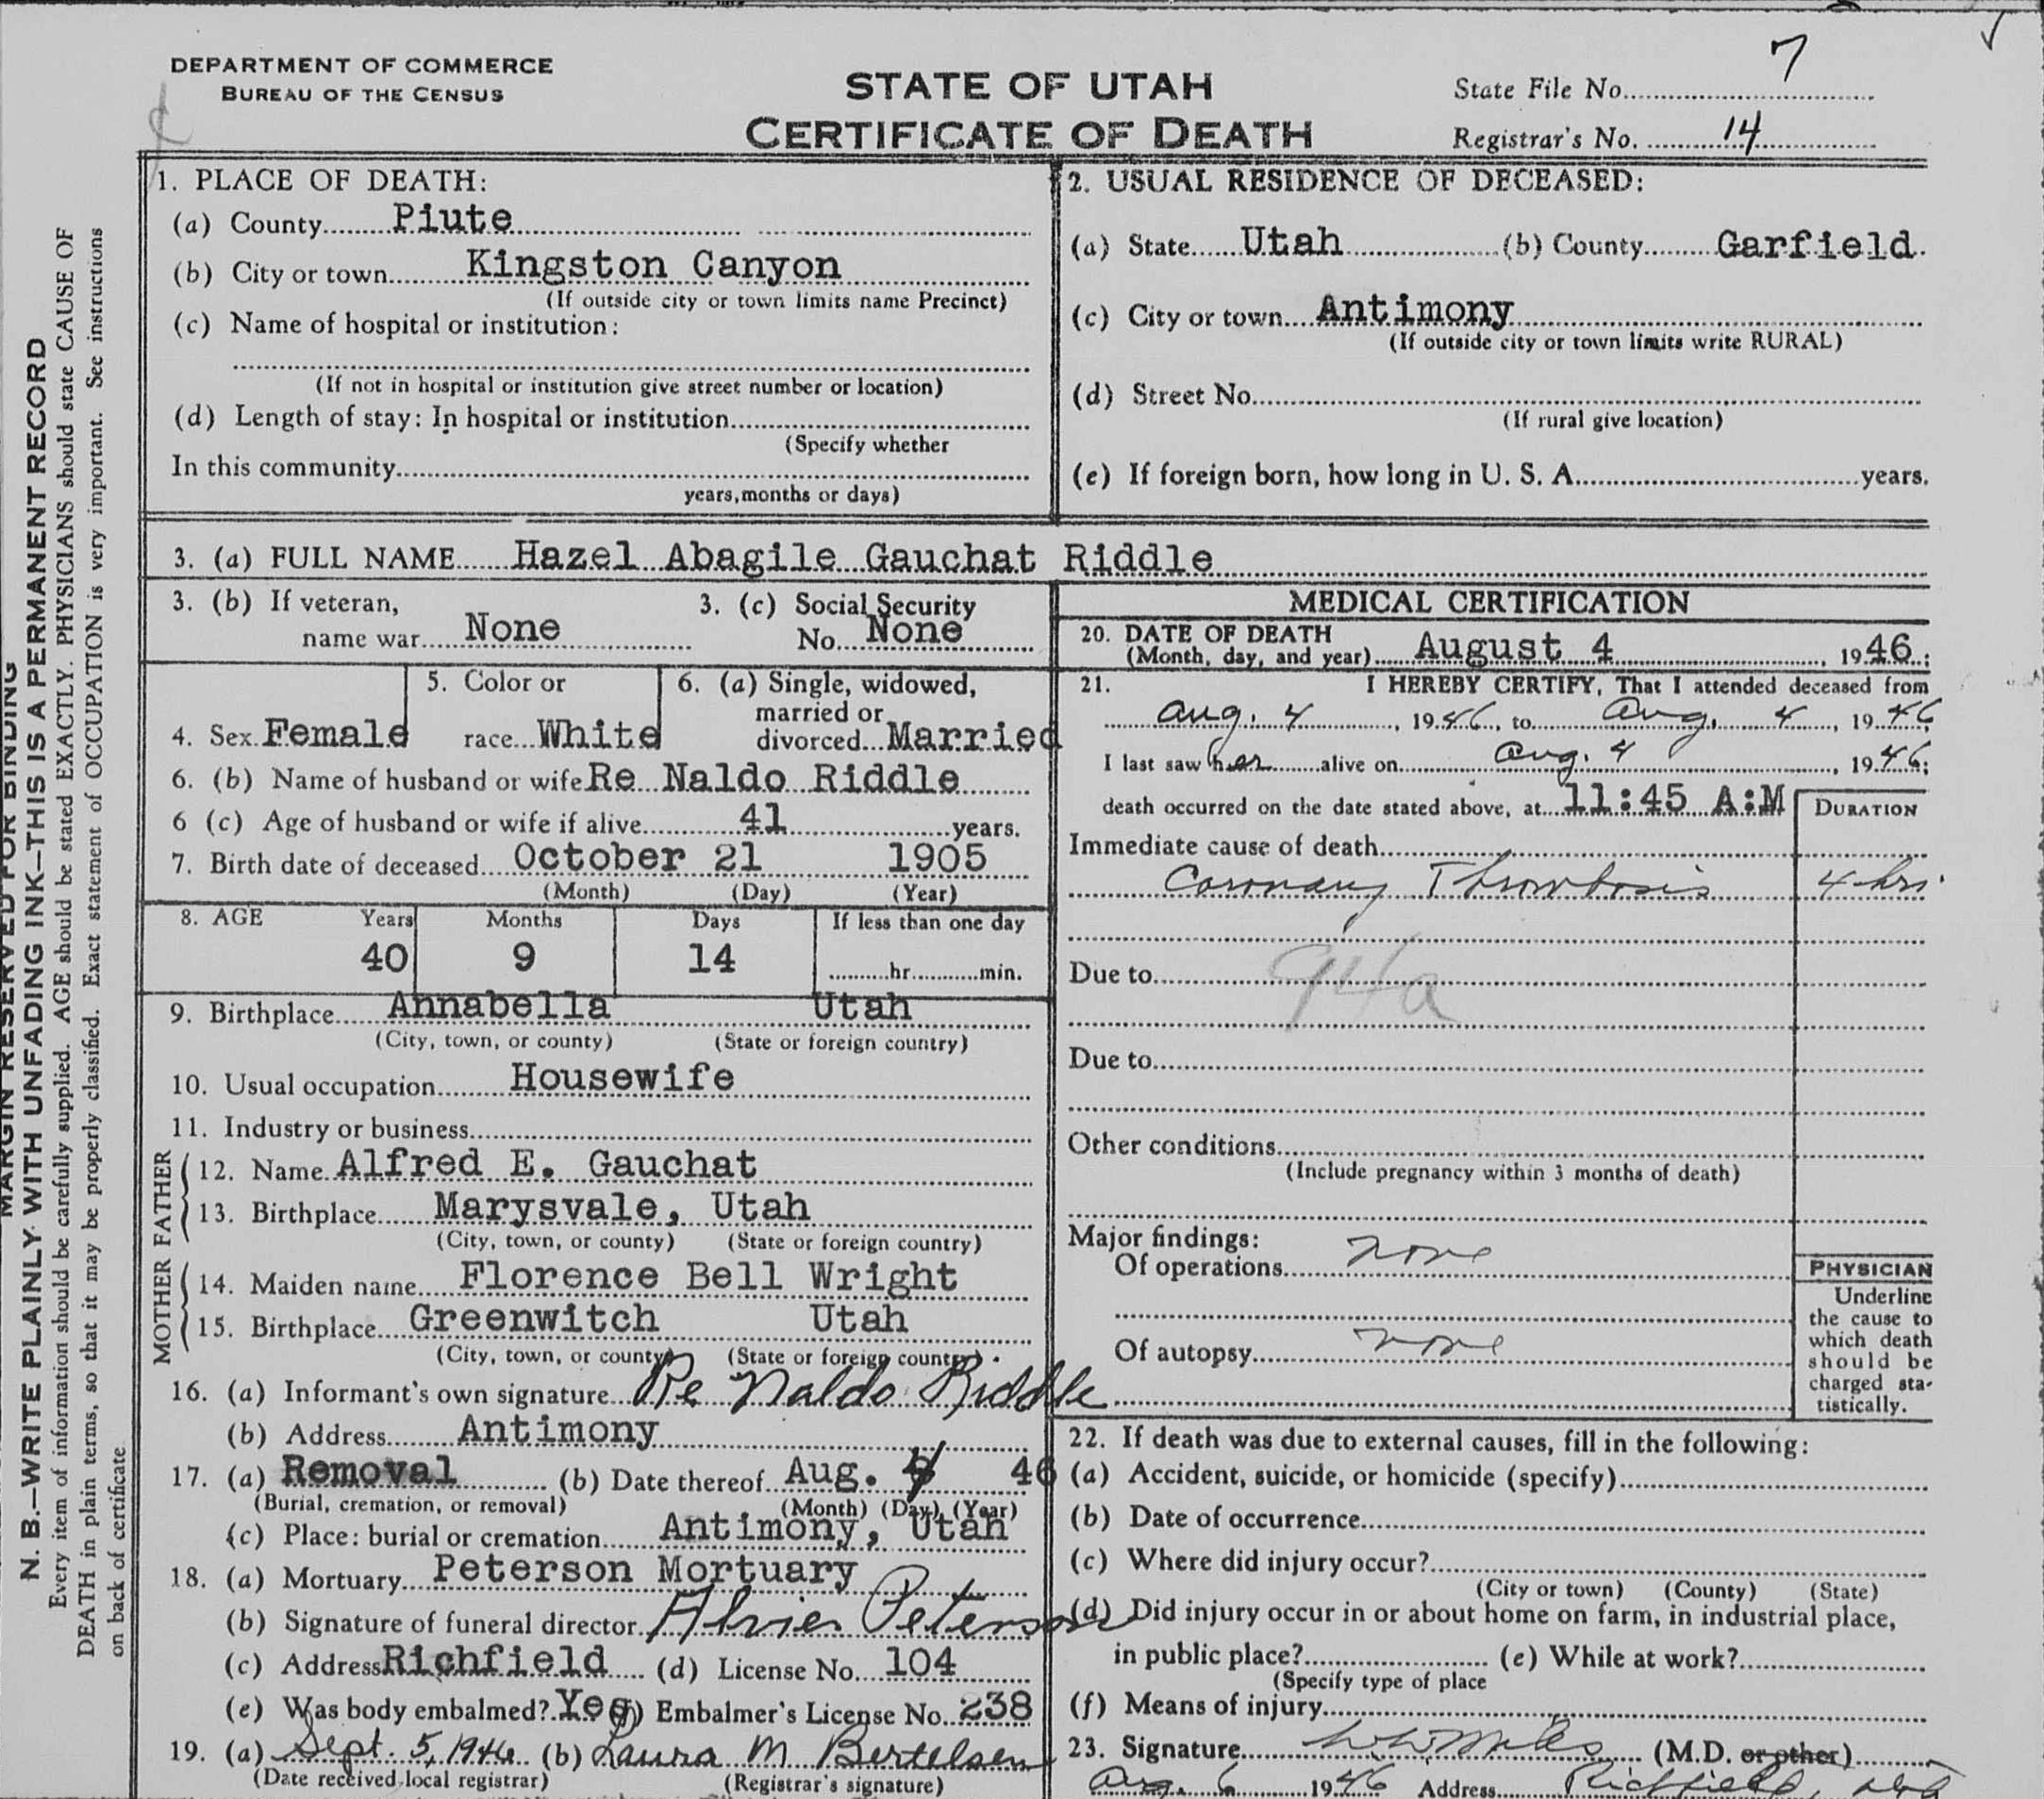 DEPARTMENT OF COMMERCE
BUREAU OF THE CENSUS
STATE OF UTAH
CERTIFICATE OF DEATH
State File No. 7
Registrar's No. 14
MARGIN RESERVED FOR BINDING
N. B.—WRITE PLAINLY WITH UNFADING INK—THIS IS A PERMANENT RECORD
Every item of information should be carefully supplied. AGE should be stated EXACTLY. PHYSICIANS should state CAUSE OF
DEATH in plain terms, so that it may be properly classified. Exact statement of OCCUPATION is very important. See instructions
on back of certificate
1. PLACE OF DEATH:
(a) County Piute
(b) City or town Kingston Canyon
(If outside city or town limits name Precinct)
(c) Name of hospital or institution:
(If not in hospital or institution give street number or location)
(d) Length of stay: In hospital or institution
(Specify whether
In this community
years, months or days)
2. USUAL RESIDENCE OF DECEASED:
(a) State Utah (b) County Garfield
(c) City or town Antimony
(If outside city or town limits write RURAL)
(d) Street No.
(If rural give location)
(e) If foreign born, how long in U. S. A. years.
3. (a) FULL NAME Hazel Abagile Gauchat Riddle
3. (b) If veteran,
name war None
3. (c) Social Security
No. None
4. Sex Female
5. Color or
race White
6. (a) Single, widowed,
married or
divorced Married
6. (b) Name of husband or wife Re Naldo Riddle
6 (c) Age of husband or wife if alive 41 years.
7. Birth date of deceased October 21 1905
(Month) (Day) (Year)
8. AGE Years Months Days If less than one day
40 9 14 hr. min.
9. Birthplace Annabella Utah
(City, town, or county) (State or foreign country)
10. Usual occupation Housewife
11. Industry or business
FATHER
12. Name Alfred E. Gauchat
13. Birthplace Marysvale, Utah
(City, town, or county) (State or foreign country)
MOTHER
14. Maiden name Florence Bell Wright
15. Birthplace Greenwitch Utah
(City, town, or county) (State or foreign country)
16. (a) Informant's own signature Re Naldo Riddle
(b) Address Antimony
17. (a) Removal (b) Date thereof Aug. 4 46
(Burial, cremation, or removal) (Month) (Day) (Year)
(c) Place: burial or cremation Antimony, Utah
18. (a) Mortuary Peterson Mortuary
(b) Signature of funeral director Peterson
(c) Address Richfield (d) License No. 104
(e) Was body embalmed? Yes (f) Embalmer's License No. 238
19. (a) Sept. 5, 1946 (b) Laura M Bertelsen
(Date received local registrar) (Registrar's signature)
MEDICAL CERTIFICATION
20. DATE OF DEATH
(Month, day, and year) August 4, 1946;
21. I HEREBY CERTIFY, That I attended deceased from
Aug. 4, 1946, to Aug. 4, 1946
I last saw her alive on Aug. 4, 1946;
death occurred on the date stated above, at 11:45 A:M
DURATION
Immediate cause of death
Coronary Thrombosis 4 hrs.
Due to 94a
Due to
Other conditions
(Include pregnancy within 3 months of death)
Major findings:
Of operations none
Of autopsy none
PHYSICIAN
Underline
the cause to
which death
should be
charged sta-
tistically.
22. If death was due to external causes, fill in the following:
(a) Accident, suicide, or homicide (specify)
(b) Date of occurrence
(c) Where did injury occur?
(City or town) (County) (State)
(d) Did injury occur in or about home on farm, in industrial place,
in public place? (e) While at work?
(Specify type of place
(f) Means of injury
23. Signature (M.D. or other)
Aug. 6 1946 Address Richfield, Utah